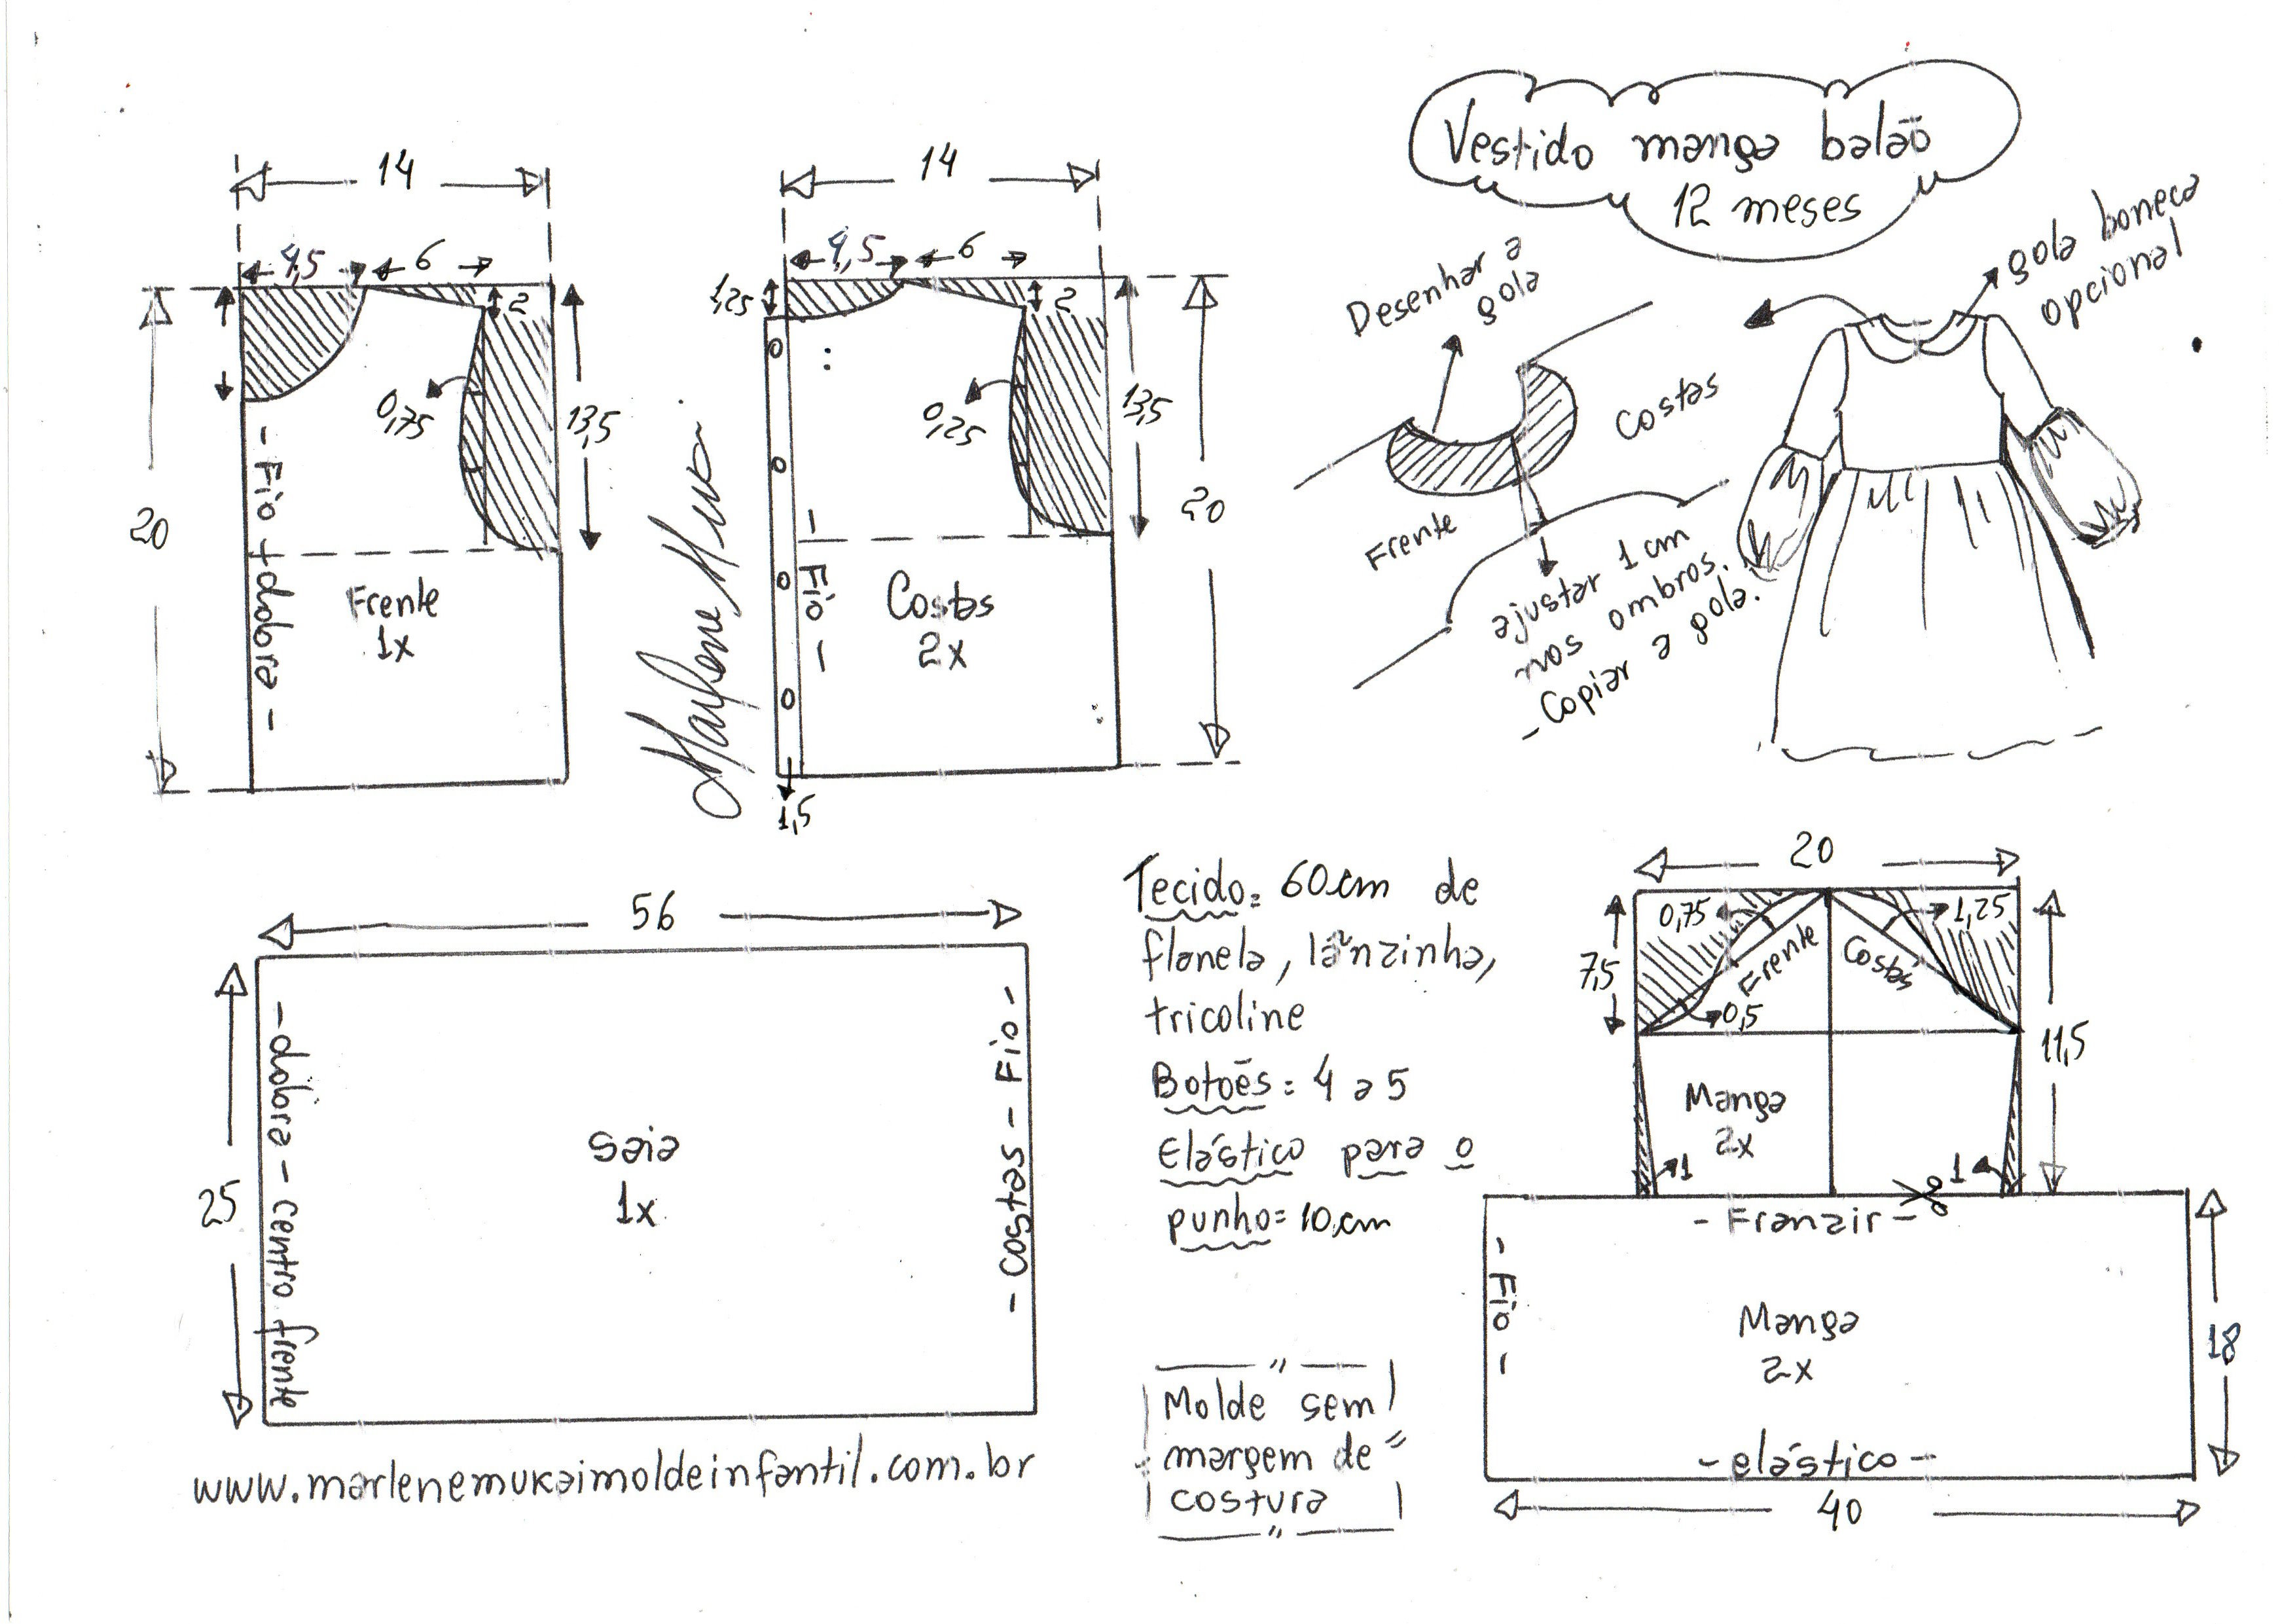 Vestido manga balaõ
12 meses
14
4,5
6
2
0,75
13,5
20
- Fio + dobra -
Frente
1x
Marlene Mukai
14
4,5
6
1,25
2
0,25
13,5
20
- Fio -
Costas
2x
1,5
Desenhar a
gola
Costas
Frente
ajustar 1 cm
nos ombros.
- Copiar a gola.
gola boneca
opcional
56
25
- dobra - centro frente
Saia
1x
- costas - Fio -
www.marlenemukaimoldeinfantil.com.br
Tecido= 60cm de
flanela, lãnzinha,
tricoline
Botoēs= 4 a 5
Elástico para o
punho= 10cm
Molde sem
margem de
costura
20
0,75
1,25
7,5
Frente
Costas
0,5
11,5
Manga
2x
1
1
- Franzir -
- Fio -
Manga
2x
18
- elástico -
40